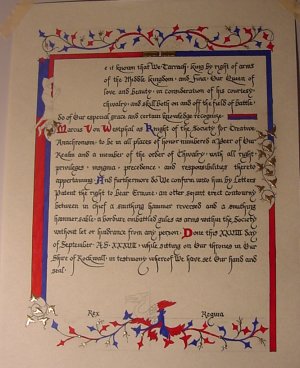 e it known that We Tarrach, king by right of arms
of the Middle kingdom, and Fina, Our Queen of
love and beauty, in consideration of his courtesy,
chivalry, and skill both on and off the field of battle,
do of Our especial grace and certain knowledge recognize
Marcus Von Westphal as Knight of the Society for Creative
Anachronism, to be in all places of honor numbered a Peer of Our
Realm and a member of the Order of Chivalry, with all right
privileges, insignia, precedence, and responsibilities thereto
appertaining. And furthermore do We confirm unto him by Letters
Patent the right to bear Ermine, an otter sejant erect contourny
between in chief a smithing hammer reversed and a smithing
hammer, sable, a bordure embattled gules as arms within the Society
without let or hindrance from any person. Done this XXVIII day
of September A.S. XXXVII, while sitting on Our thrones in Our
Shire of Rockwall, in testimony whereof We have set Our hand and
seal.
Rex Regina